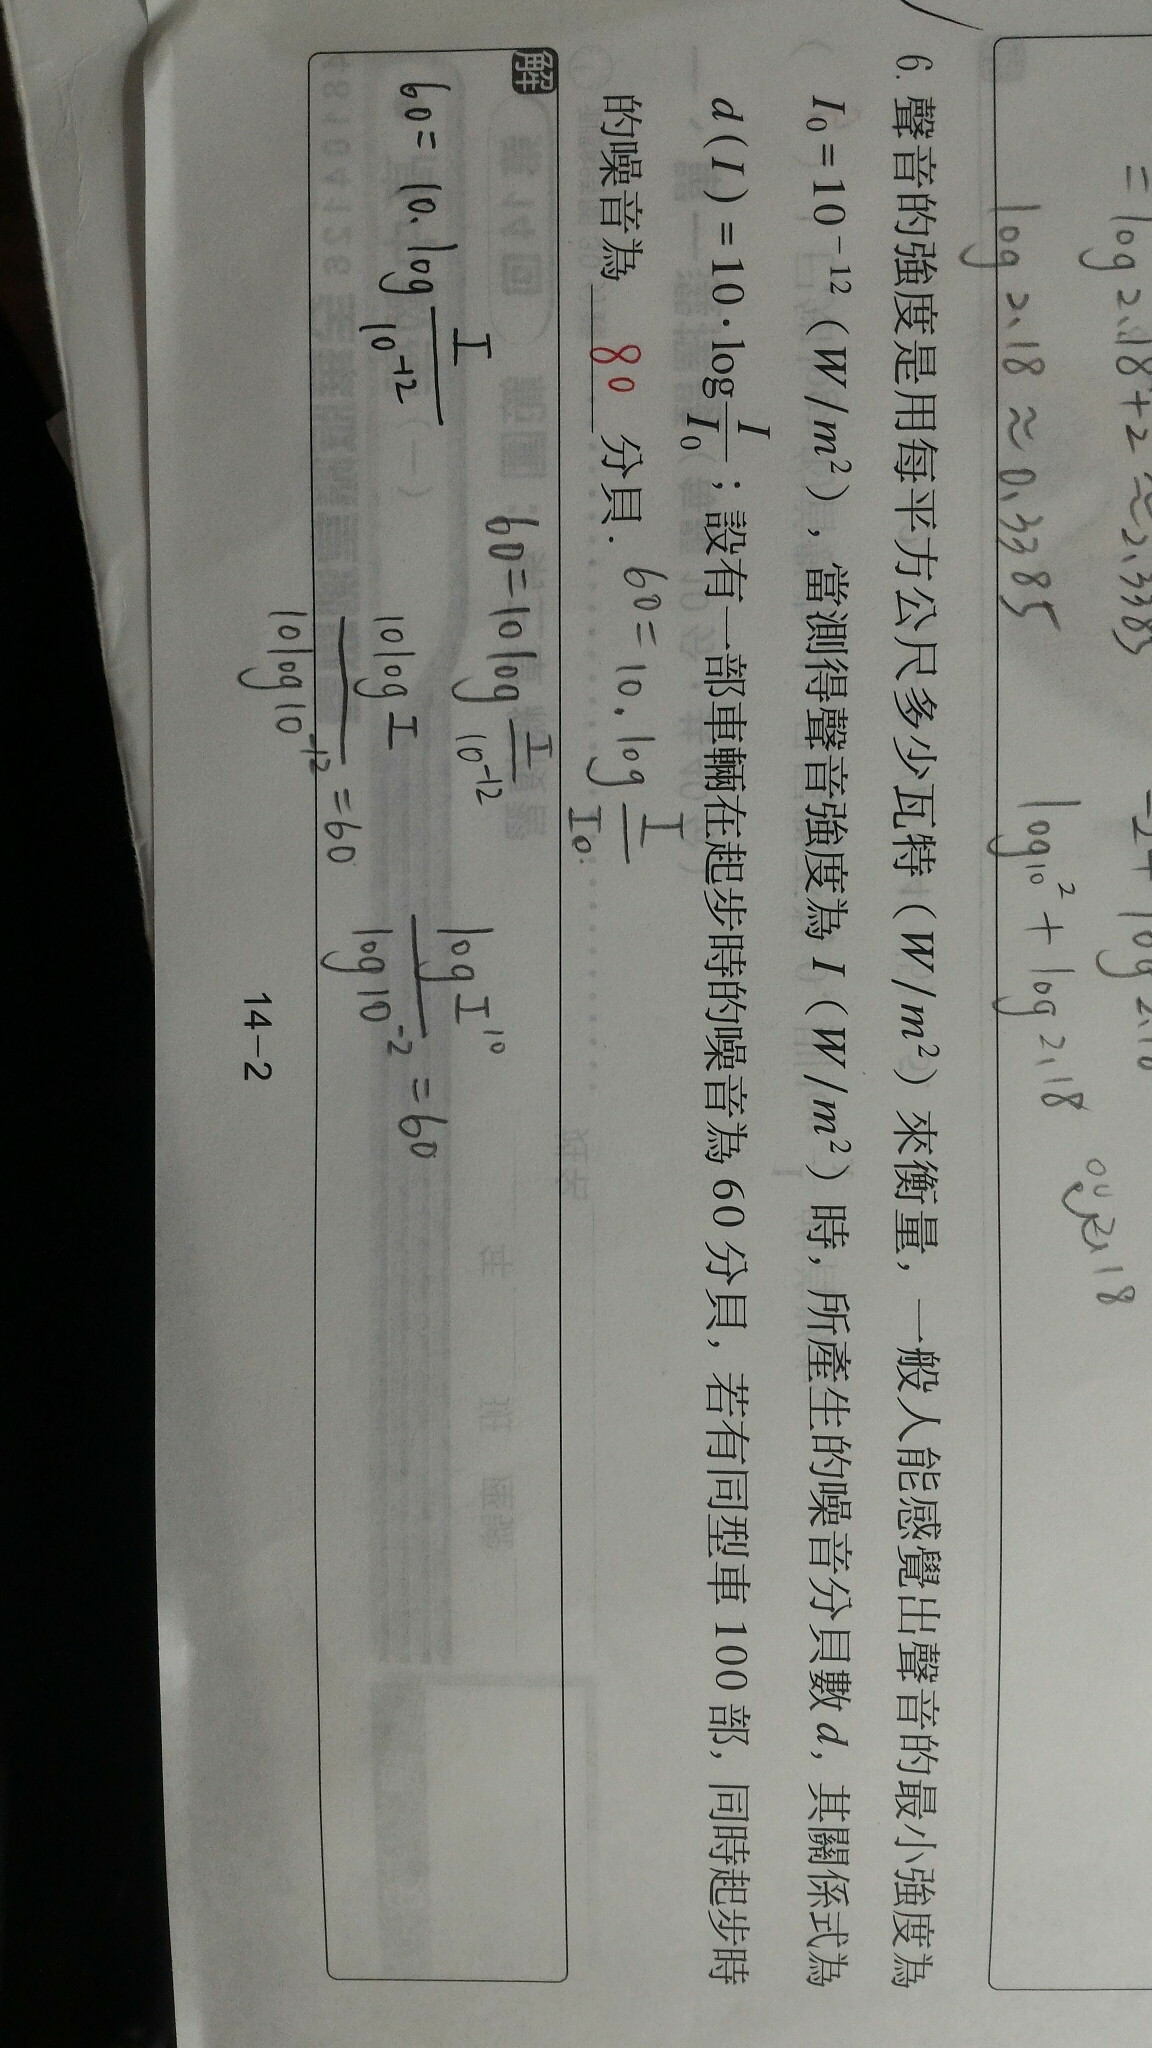 = log 2.18 + 2 ≈ 2.3385
log 2.18 ≈ 0.3385
log10² + log 2.18
6. 聲音的強度是用每平方公尺多少瓦特（W/m²）來衡量，一般人能感覺出聲音的最小強度為
I₀ = 10⁻¹²（W/m²），當測得聲音強度為 I（W/m²）時，所產生的噪音分貝數 d，其關係式為
d(I) = 10 · log I/I₀；設有一部車輛在起步時的噪音為 60 分貝，若有同型車 100 部，同時起步時
的噪音為 80 分貝．
60 = 10. log I/I₀
解
60 = 10. log I/10⁻¹²
60 = 10 log I/10⁻¹²
10 log I / 10 log 10⁻¹² = 60
log I¹⁰ / log 10⁻² = 60
14−2